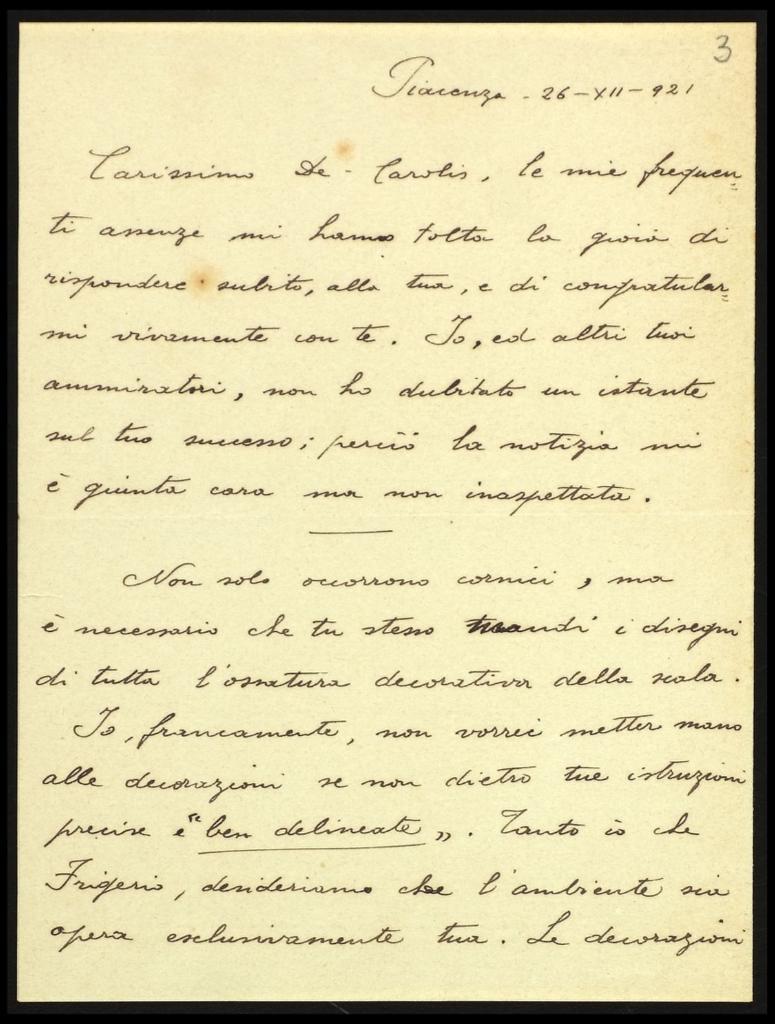 3
Piacenza - 26-XII-921
Carissimo De-Carolis, le mie frequen=
ti assenze mi hanno tolta la gioia di
rispondere subito, alla tua, e di congratular=
mi vivamente con te. Io, ed altri tuoi
ammiratori, non ho dubitato un istante
sul tuo successo; perciò la notizia mi
è giunta cara ma non inaspettata.
Non solo occorrono cornici, ma
è necessario che tu stesso mandi i disegni
di tutta l'ossatura decorativa della scala.
Io, francamente, non vorrei metter mano
alle decorazioni se non dietro tue istruzioni
precise e "ben delineate". Tanto io che
Frigerio, desideriamo che l'ambiente sia
opera esclusivamente tua. Le decorazioni